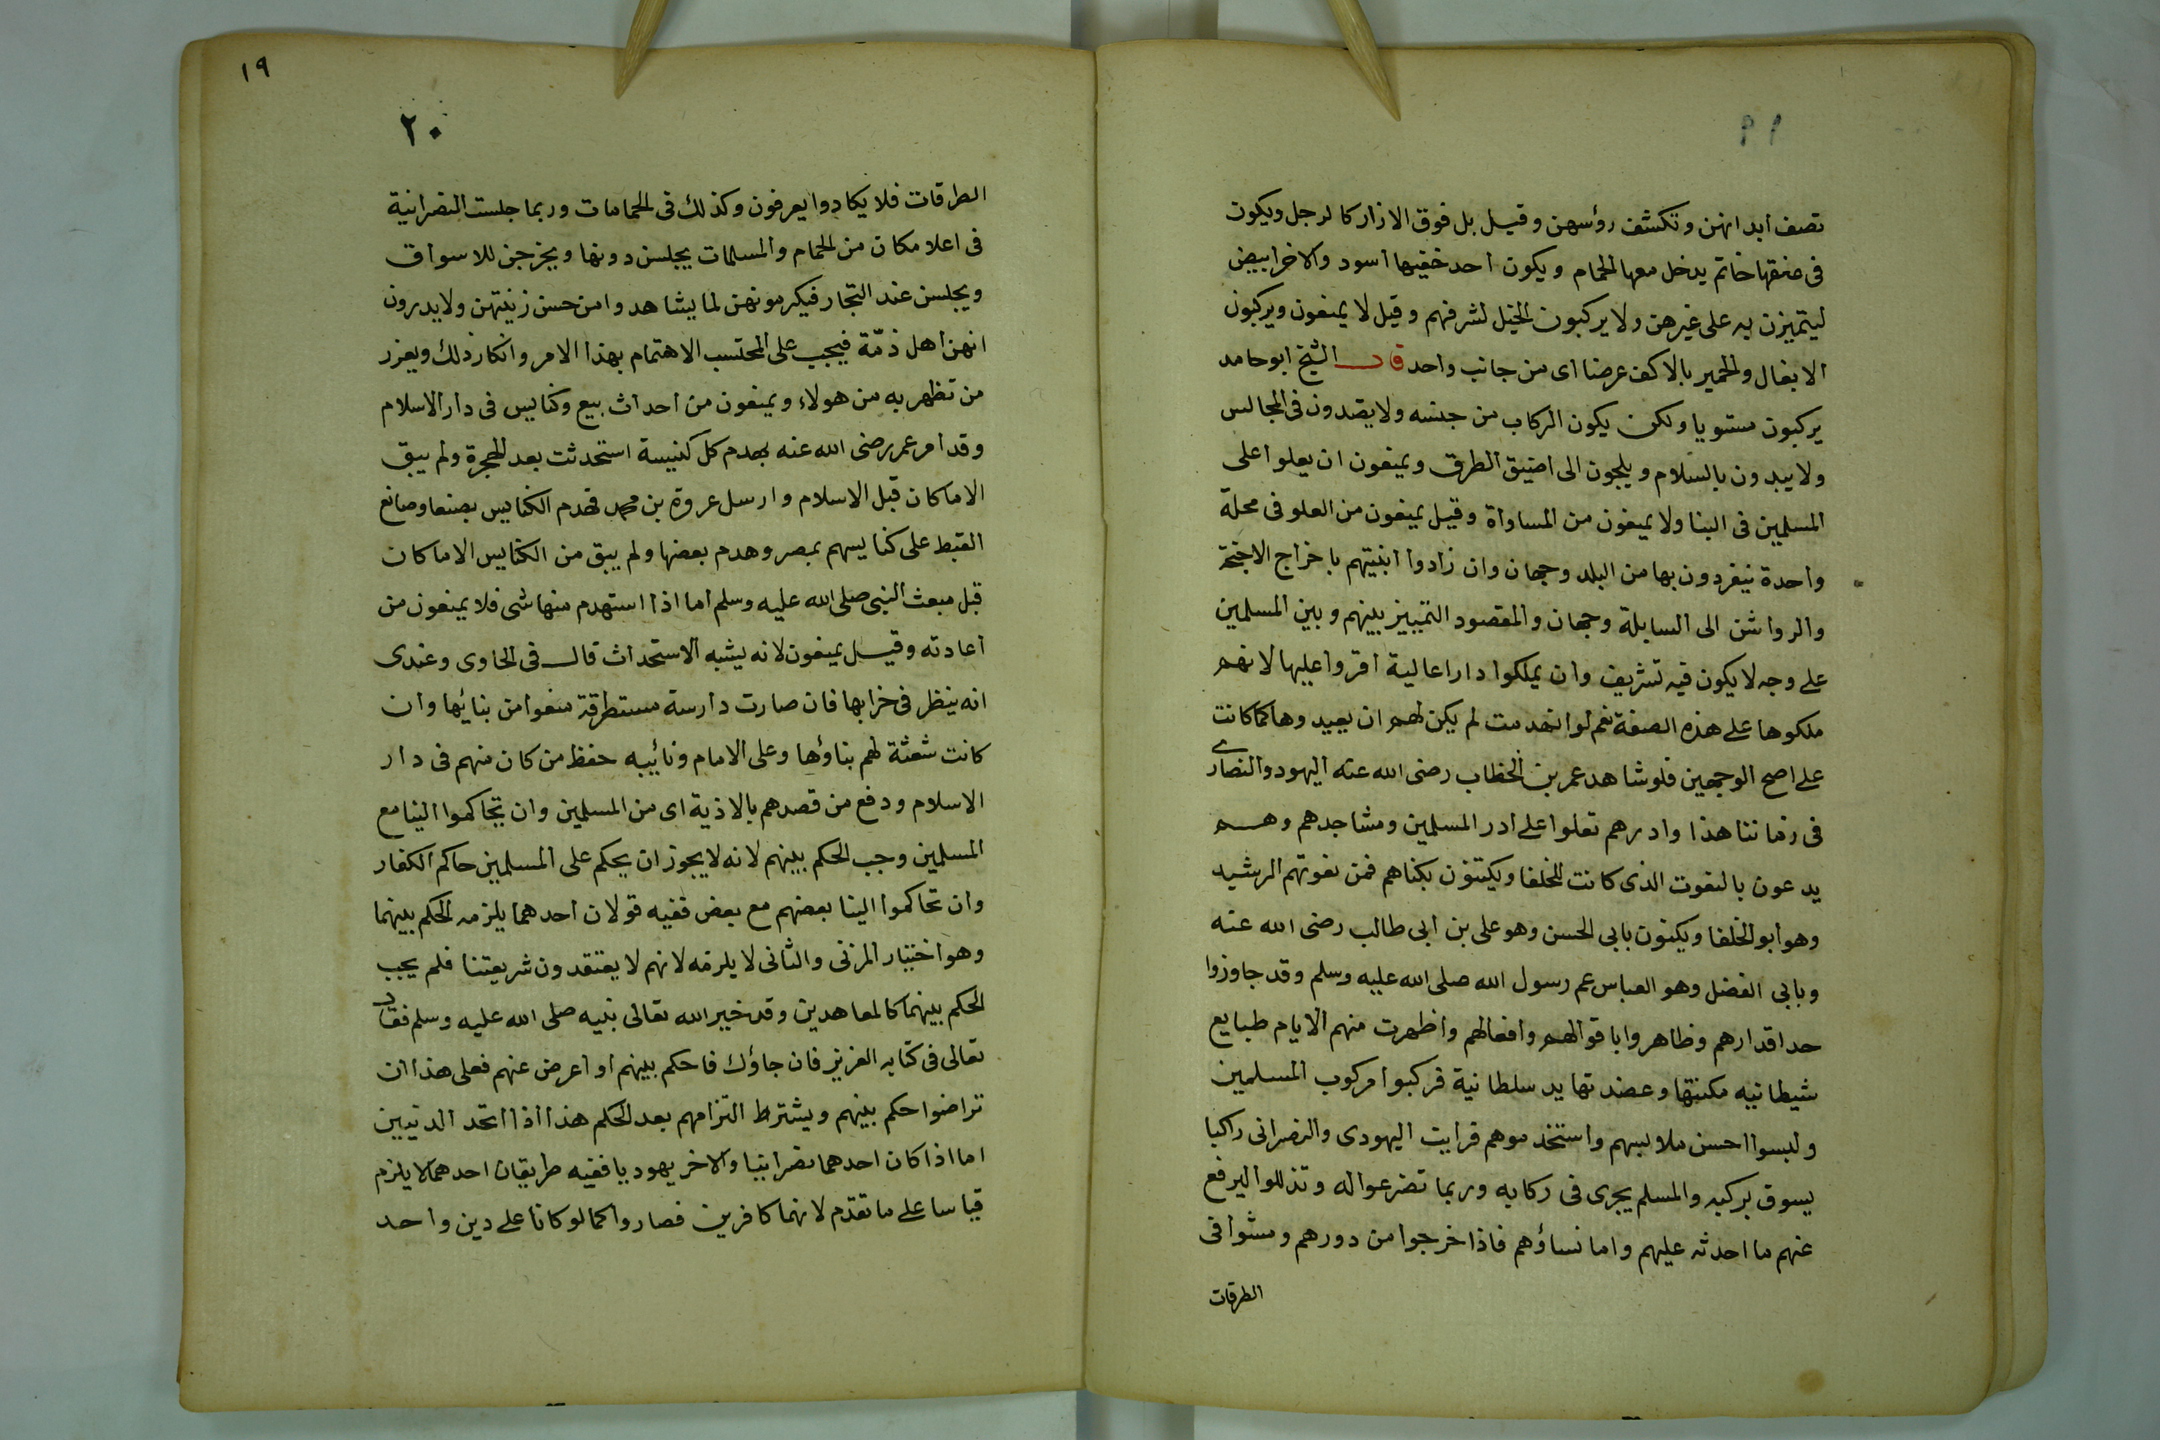 ١٩
تصف ابدانهن وتكشف رؤسهن وقيل بل فوق الازار كالرجل ويكون
فى عنقها خاتم يدخل معها الحمام ويكون احد خفيها اسود والاخر ابيض
ليتميزن به على غيرهن ولا يركبون الخيل لشرفهم وقيل لا يمنعون ويركبون
الابغال والحمير بالاكف عرضا اى من جانب واحد قال الشيخ ابو حامد
يركبون مستويا ولكن يكون الركاب من جنسه ولا يصدون فى المجالس
ولا يبدون بالسلام ويلجون الى اضيق الطرق ويمنعون ان يعلوا على
المسلمين فى البنا ولا يمنعون من المساواة وقيل يمنعون من العلو فى محلة
واحدة ينفردون بها من البلد وجهان وان زادوا ابنيتهم باخراج الاجنحة
والرواشن الى السابلة وجهان والمقصود التمييز بينهم وبين المسلمين
على وجه لا يكون فيه تشريف وان يملكوا دارا عالية اقروا عليها لانهم
ملكوها على هذه الصفة نعم لو انهدمت لم يكن لهم ان يعيدوها كما كانت
على اصح الوجهين فلو شاهد عمر بن الخطاب رضى الله عنه اليهود والنصارى
فى زماننا هذا وادرهم تعلوا على ادر المسلمين ومشاجدهم وهم
يدعون بالنعوت الذى كانت للخلفا ويكتنون بكناهم فمن نعوتهم الرشيد
وهو ابو الخلفا ويكنون بابى الحسن وهو على بن ابى طالب رضى الله عنه
وبابى الفضل وهو العباس عم رسول الله صلى الله عليه وسلم وقد جاوزوا
حد اقدارهم وظاهروا باقوالهم وافعالهم واظهرت منهم الايام طبايع
شيطانيه مكنتها وعضدتها يد سلطانية فركبوا مركوب المسلمين
ولبسوا احسن ملابسهم واستخدموهم فرايت اليهودى والنصرانى راكبا
يسوق بركبه والمسلم يجرى فى ركابه وربما تضرعوا له وتذللوا ليرفع
عنهم ما احدثه عليهم واما نساؤهم فاذا خرجوا من دورهم ومشوا فى
الطرقات
١٩
٢٠
الطرقات فلا يكادوا يعرفون وكذلك فى الحمامات وربما جلست النصرانية
فى اعلا مكان من الحمام والمسلمات يجلسن دونها ويخرجن للاسواق
ويجلسن عند التجار فيكرمونهن لما يشاهدوا من حسن زينتهن ولا يدرون
انهن اهل ذمّة فيجب على المحتسب الاهتمام بهذا الامر وانكار ذلك ويعزر
من تظهر به من هولاء ويمنعون من احداث بيع وكنايس فى دار الاسلام
وقد امر عمر رضى الله عنه بهدم كل كنيسة استحدثت بعد الهجرة ولم يبق
الا ما كان قبل الاسلام وارسل عروة بن محمد فهدم الكنايس بصنعا وصانع
القبط على كنايسهم بمصر وهدم بعضها ولم يبق من الكنايس الا ما كان
قبل مبعث النبى صلى الله عليه وسلم اما اذا استهدم منها شى فلا يمنعون من
اعادته وقيل يمنعون لانه يشبه الاستحداث قال فى الحاوى وعندى
انه ينظر فى خرابها فان صارت دارسة مستطرقة منعوا من بنائها وان
كانت شعثة لهم بناؤها وعلى الامام ونائبه حفظ من كان منهم فى دار
الاسلام ودفع من قصدهم بالاذية اى من المسلمين وان تحاكموا الينا مع
المسلمين وجب الحكم بينهم لانه لا يجوز ان يحكم على المسلمين حاكم الكفار
وان تحاكموا الينا بعضهم مع بعض ففيه قولان احدهما يلزمه الحكم بينهما
وهو اختيار المزنى والثانى لا يلزمه لانهم لا يعتقدون شريعتنا فلم يجب
الحكم بينهما كالمعاهدين وقد خير الله تعالى نبيه صلى الله عليه وسلم فقال
تعالى فى كتابه العزيز فان جاؤك فاحكم بينهم او اعرض عنهم فعلى هذا ان
تراضوا حكم بينهم ويشترط التزامهم بعد الحكم هذا اذا اتحد الدينين
اما اذا كان احدهما نصرانيا والاخر يهوديا ففيه طريقان احدهما لا يلزم
قياسا على ما تقدّم لانهما كافرين فصاروا كما لو كانا على دين واحد